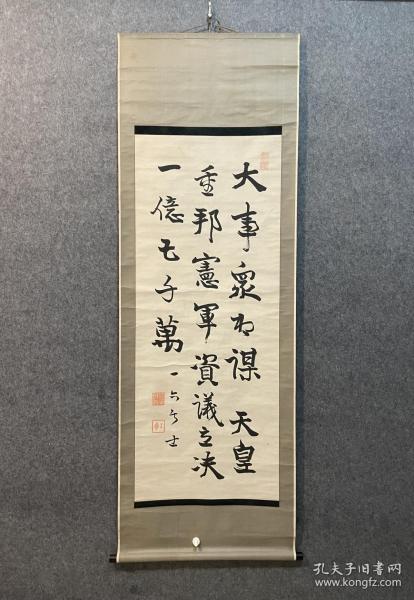 大事眾相謀 天皇
重邦憲軍資議立決
一億七千萬
一六居士
孔夫子旧书网
www.kongfz.com